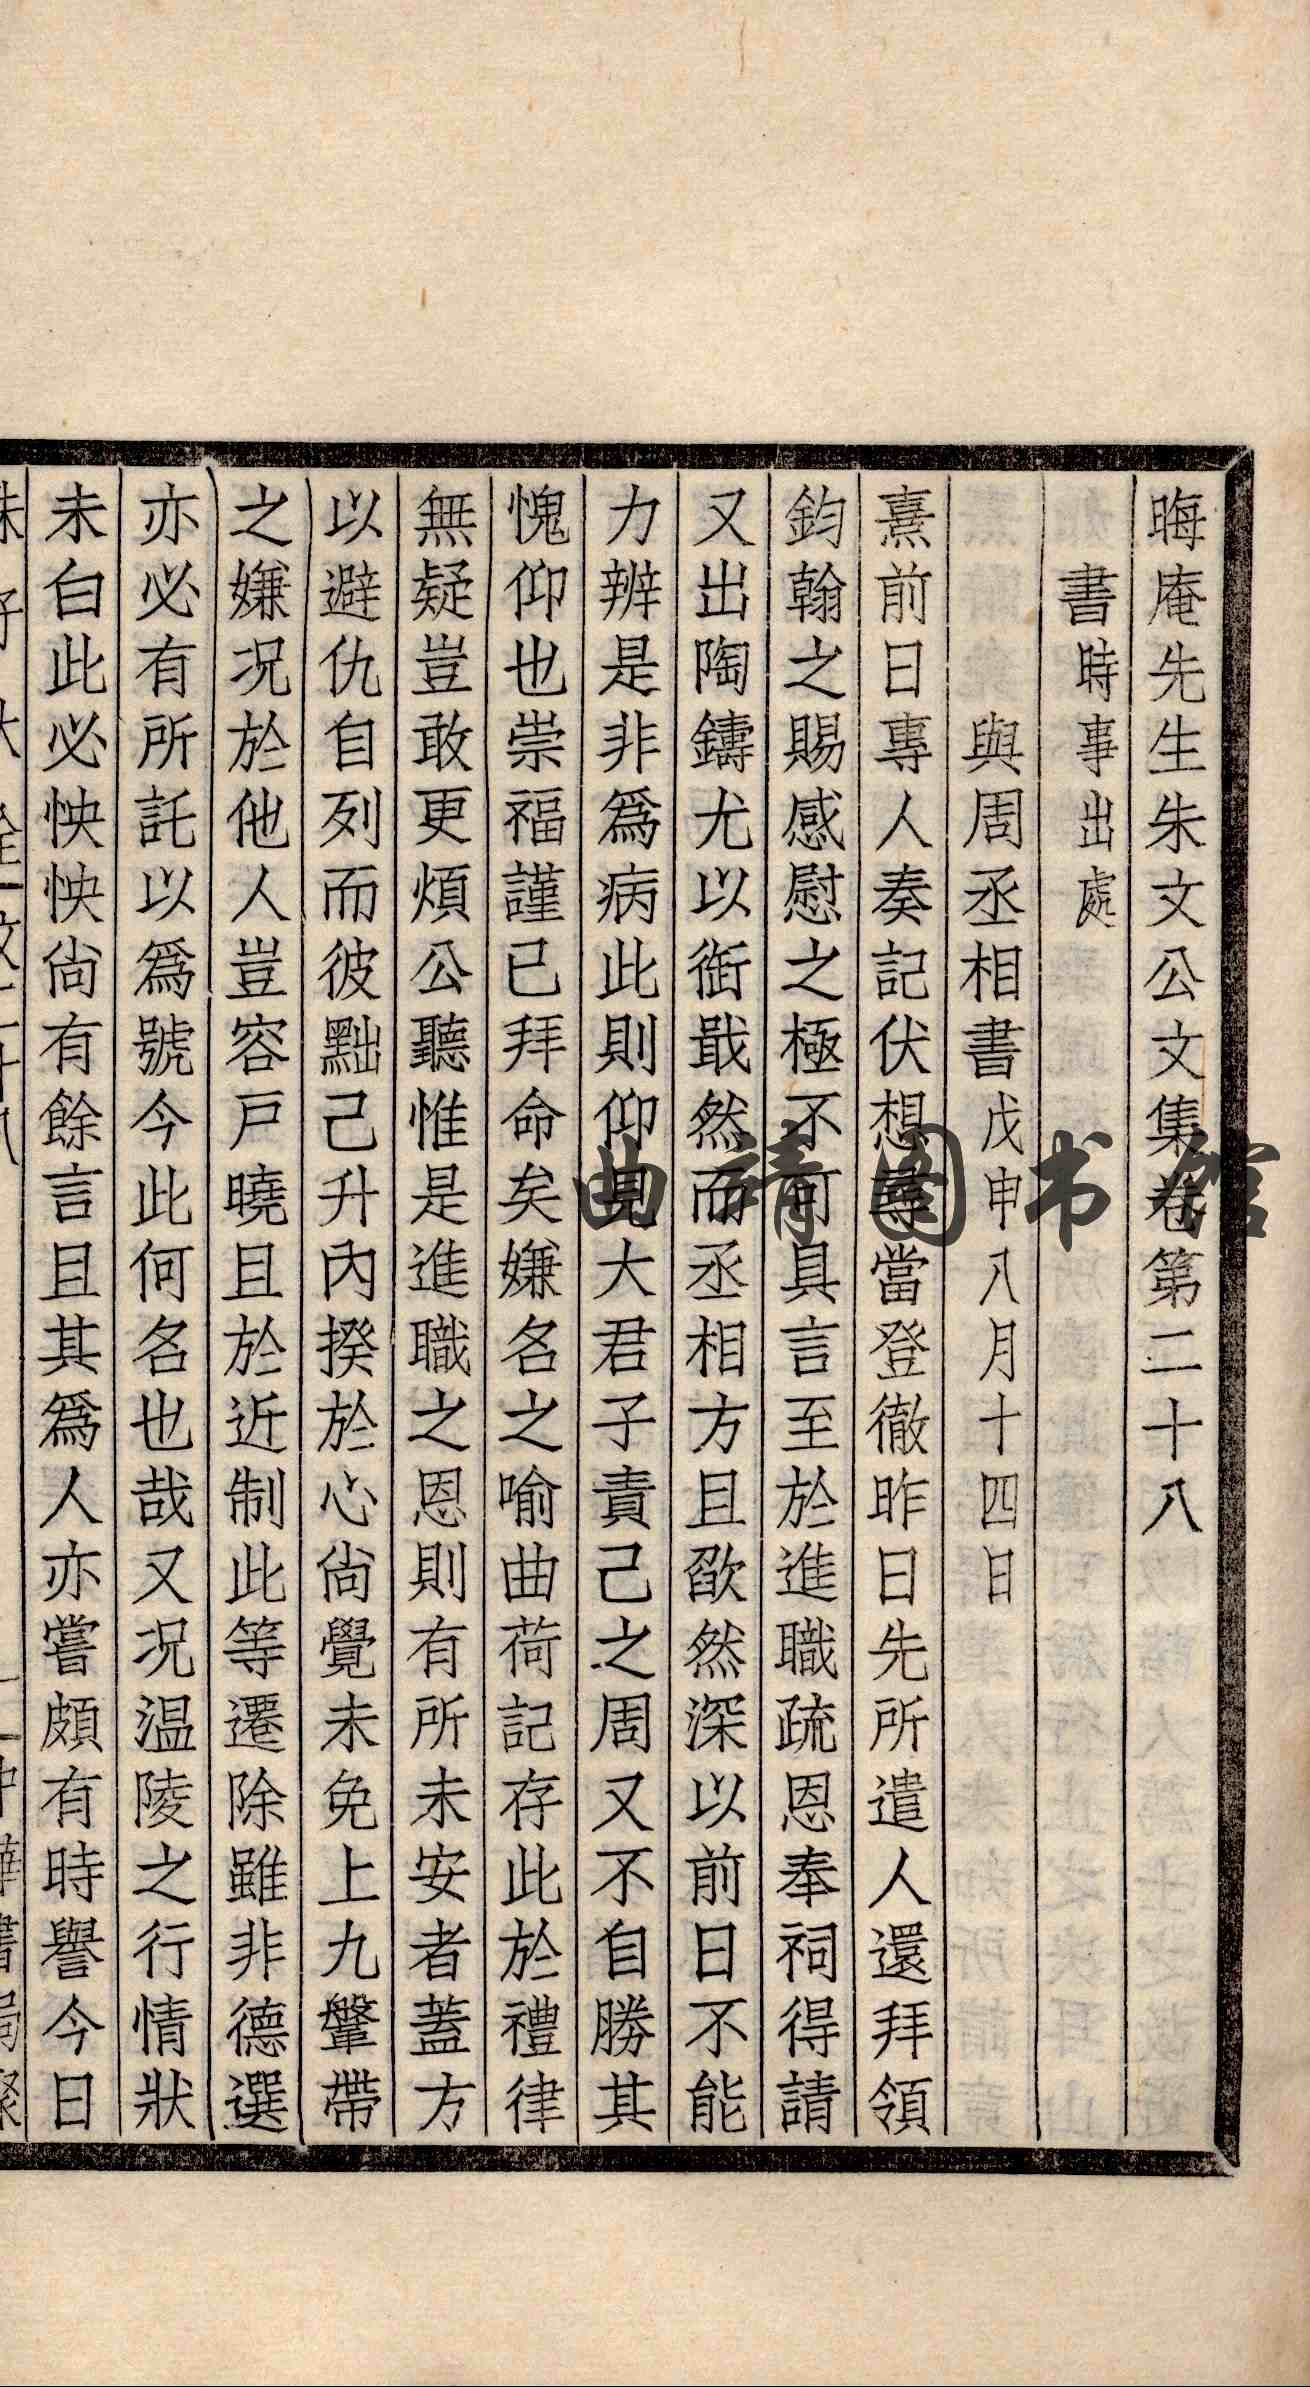 晦庵先生朱文公文集卷第二十八
書時事出處
與周丞相書戊申八月十四日
熹前日專人奏記伏想尋當登徹昨日先所遣人還拜領
鈞翰之賜感慰之極不可具言至於進職疏恩奉祠得請
又出陶鑄尤以銜戢然而丞相方且欿然深以前日不能
力辨是非爲病此則仰見大君子責己之周又不自勝其
愧仰也崇福謹已拜命矣嫌名之喻曲荷記存此於禮律
無疑豈敢更煩公聽惟是進職之恩則有所未安者蓋方
以避仇自列而彼黜己升內揆於心尙覺未免上九鞶帶
之嫌况於他人豈容戶曉且於近制此等遷除雖非德選
亦必有所託以爲號今此何名也哉又况温陵之行情狀
未白此必怏怏尙有餘言且其爲人亦嘗頗有時譽今日
曲靖图书馆